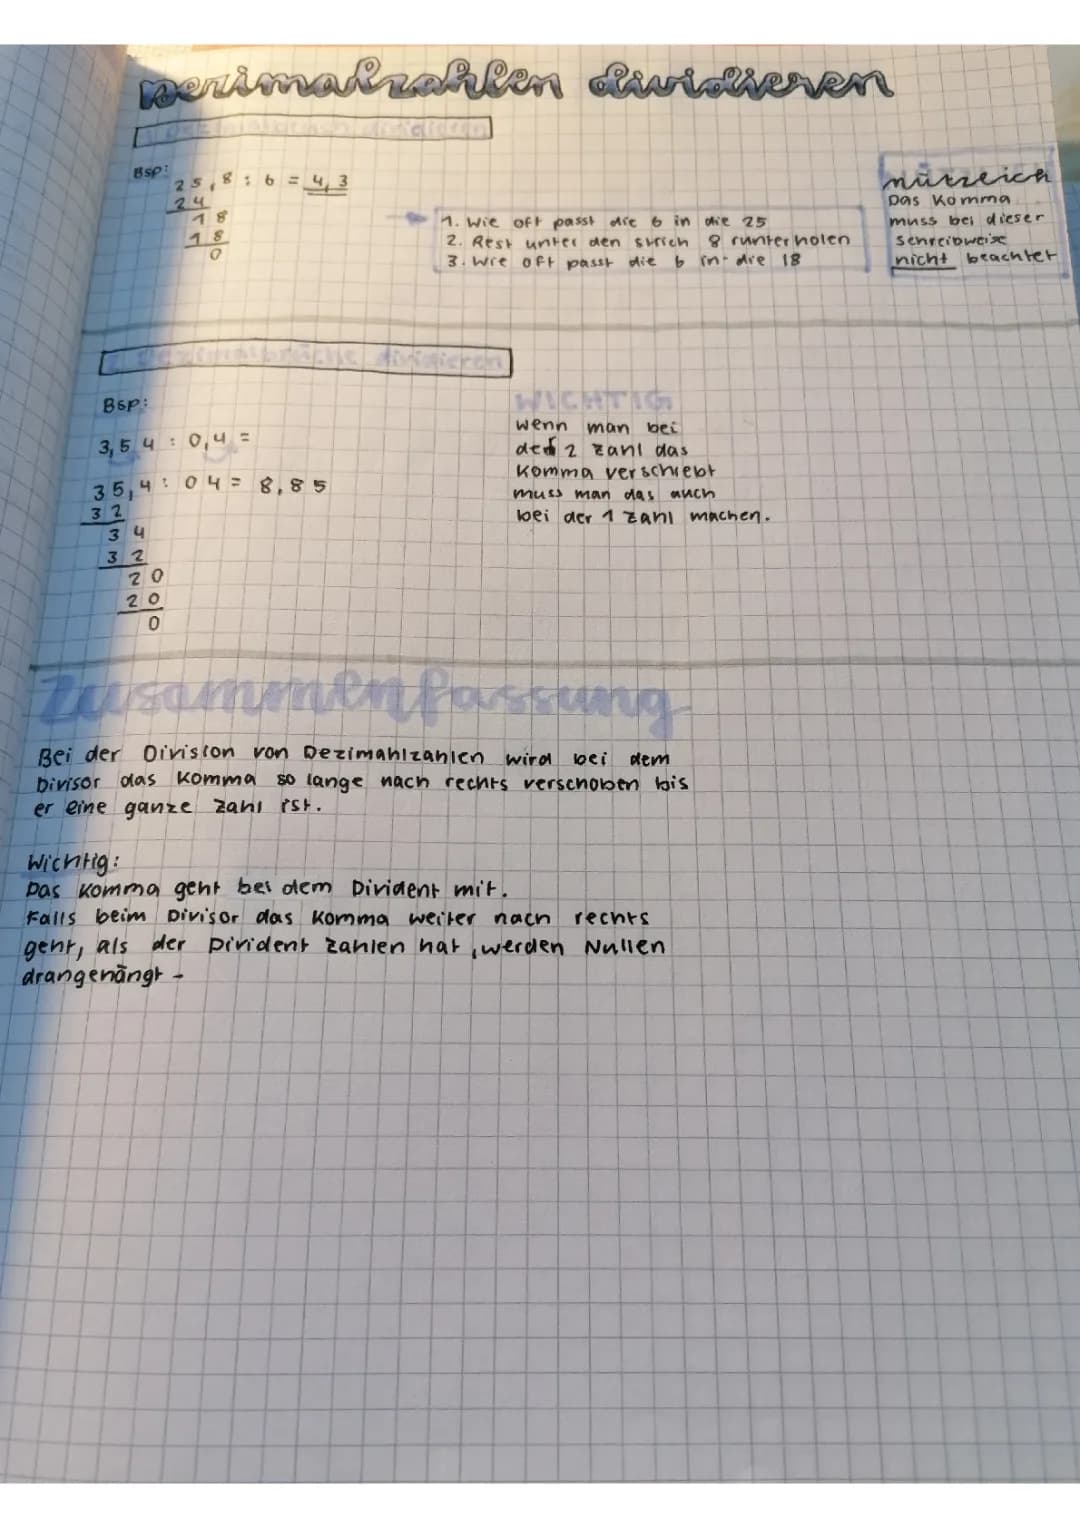 Dezimalzahlen dividieren
dividieren
Bsp:
25,8 : 6 = 4,3
24
18
18
0
1. Wie oft passt die 6 in die 25
2. Rest unter den strich 8 runterholen
3. Wie oft passt die 6 in die 18
nützleich
Das Komma
muss bei dieser
Schreibweise
nicht beachtet
2. Dezimalbrüche dividieren
Bsp:
3,54 : 0,4 =
35,4 : 04 = 8,85
32
34
32
20
20
0
WICHTIG
wenn man bei
der 2 zahl das
Komma verschiebt
muss man das auch
bei der 1 zahl machen.
Zusammenfassung
Bei der Division von Dezimahlzahlen wird bei dem
Divisor das Komma so lange nach rechts verschoben bis
er eine ganze Zahl ist.
Wichtig:
Das Komma geht bei dem Divident mit.
Falls beim Divisor das Komma weiter nach rechts
geht, als der Divident Zahlen hat, werden Nullen
drangehängt -